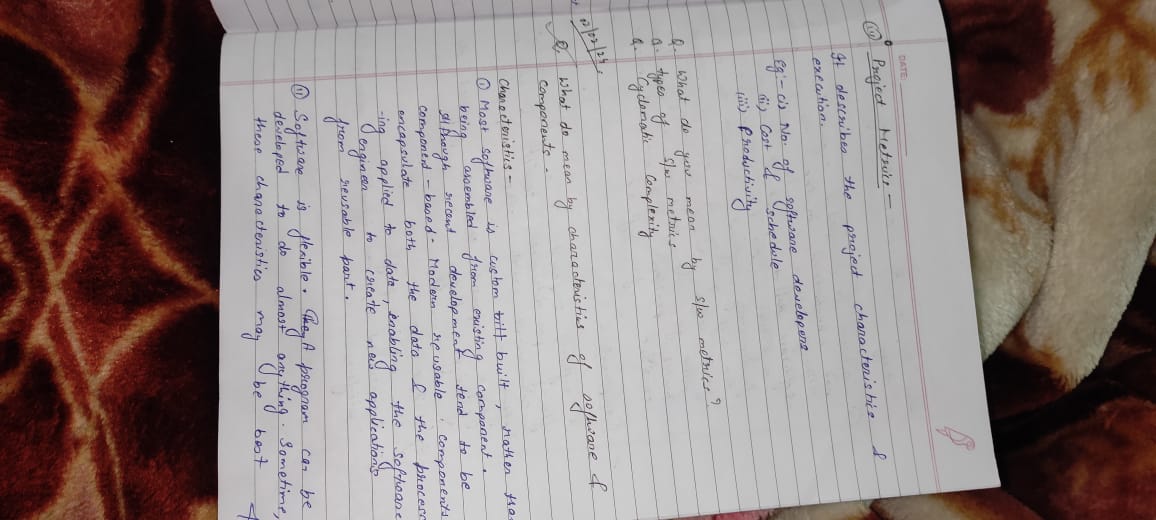 DATE:
(iii) Project Metrics -
It describes the project characteristic &
execution.
eg:- (i) No. of software developers
(ii) Cost & schedule
(iii) Productivity
Q. What do you mean by s/w metrics?
Q. types of s/w metrics
Q. Cyclomatic Complexity
Q. What do mean by characteristics of software &
components.
Characteristics -
(i) Most software is custom built, rather than
being assembled from existing component.
Although recent development tend to be
component-based. Modern reusable components
encapsulate both the data & the process
-ing applied to data, enabling the software
engineer to create new applications
from reusable part.
(ii) Software is flexible. A program can be
developed to do almost anything. Sometime,
these characteristics may be best